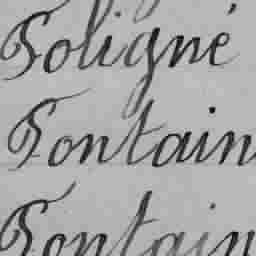 Foligné
Fontain
Fontain